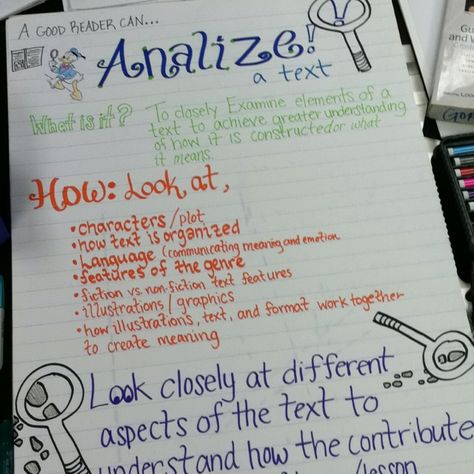 A GOOD READER CAN...
Analize!
a text
What is it?
To closely Examine elements of a
text to achieve greater understanding
of how it is constructed or what
it means.
How: Look at,
• characters/plot
• how text is organized
• Language (communicating meaning and emotion
• features of the genre
• fiction vs non-fiction text features
• illustrations/graphics
• how illustrations, text, and format work together
to create meaning
Look closely at different
aspects of the text to
understand how the contribute
/lesson